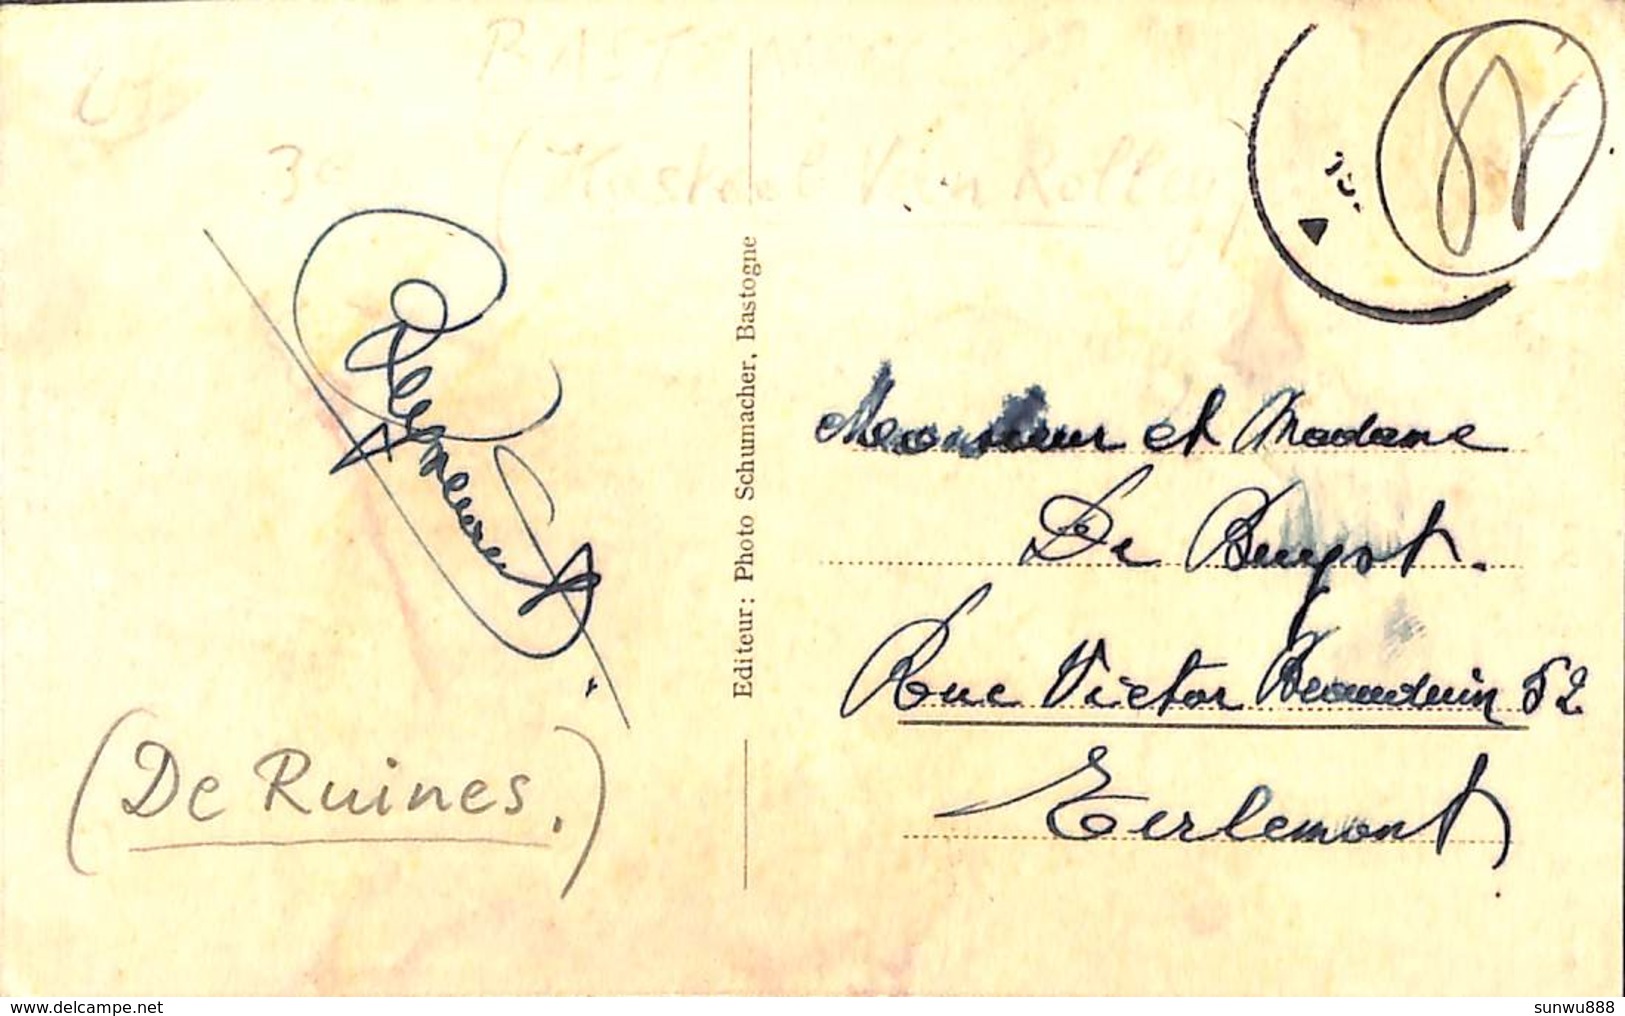 BASTOGNE
3e
(Kasteel Van Rolley)
(De Ruines.)
Editeur: Photo Schumacher, Bastogne
Monsieur et Madame
De Buyst.
Rue Victor Beauduin 52
Tirlemont
https://www.delcampe.net
sunwu888